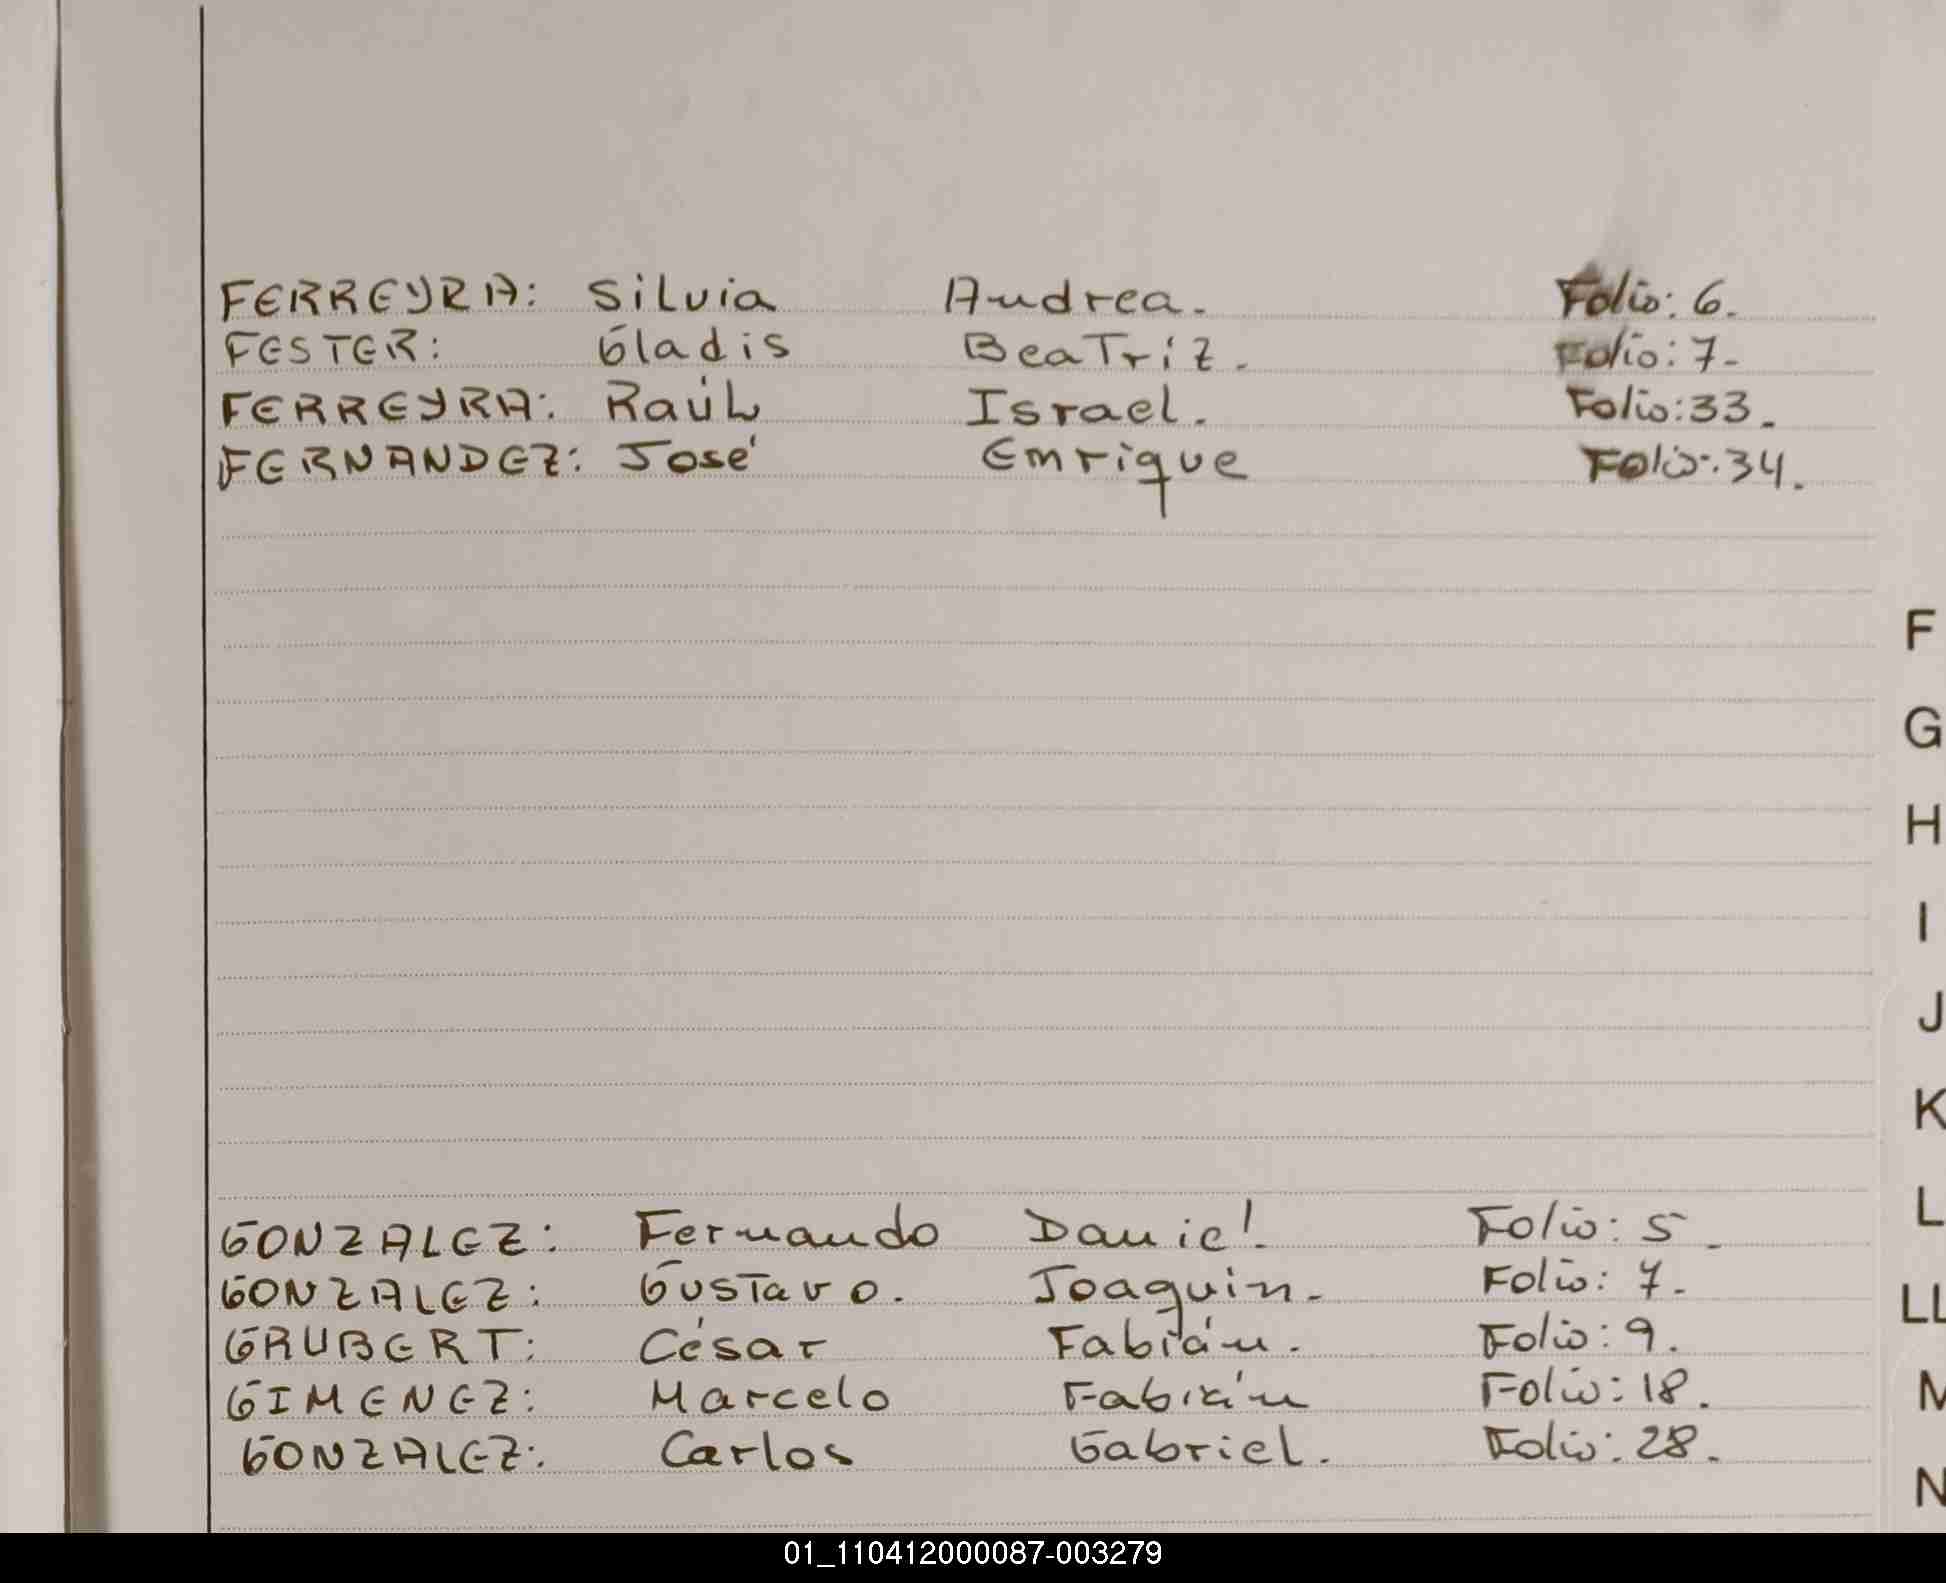 FERREYRA: Silvia Andrea. Folio: 6.
FESTER: Gladis Beatriz. Folio: 7.
FERREYRA: Raúl Israel. Folio: 33.
FERNANDEZ: José Enrique Folio: 34.
F
G
H
I
J
K
L
LL
M
N
GONZALEZ: Fernando Daniel. Folio: 5.
GONZALEZ: Gustavo. Joaquin. Folio: 7.
GRUBERT: César Fabián. Folio: 9.
GIMENEZ: Marcelo Fabián Folio: 18.
GONZALEZ: Carlos Gabriel. Folio: 28.
01_110412000087-003279